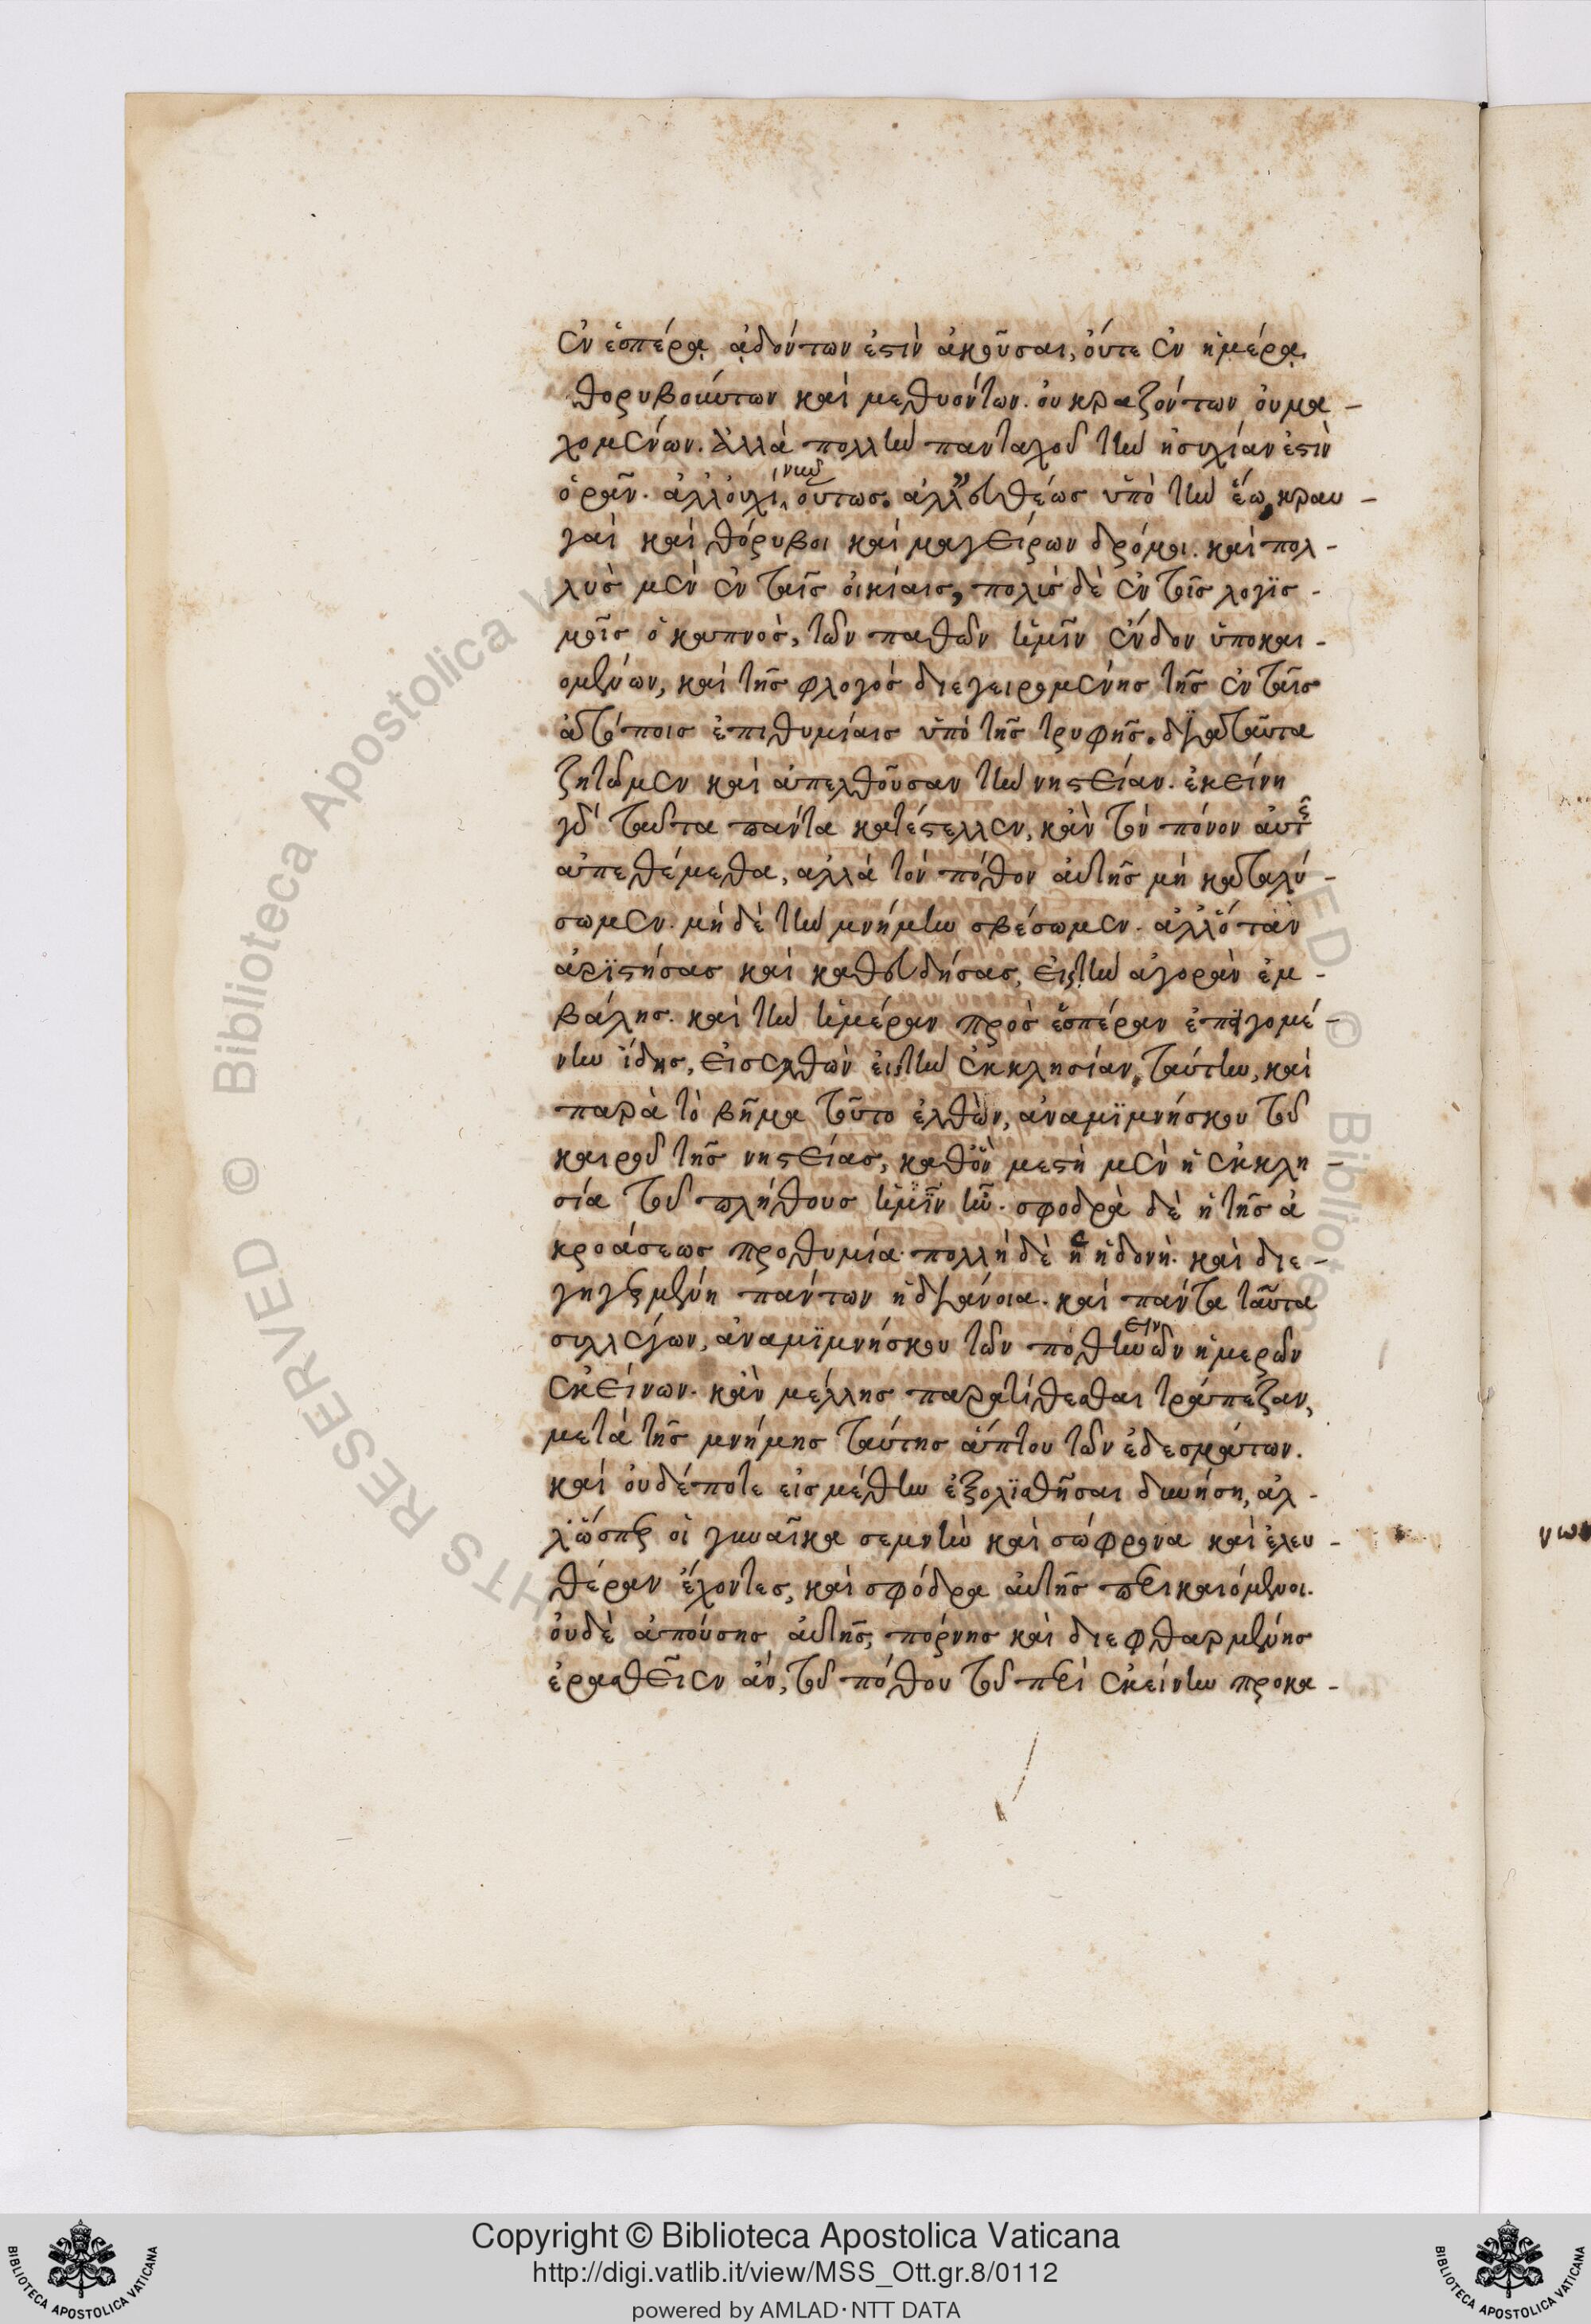 ἐν ἑσπέρᾳ ᾀδόντων ἐστὶν ἀκοῦσαι, οὔτε ἐν ἡμέρᾳ
θορυβούντων καὶ μεθυόντων. οὐ κραζόντων οὐ μα-
χομένων. Ἀλλὰ πολλὴν πανταχοῦ τὴν ἡσυχίαν ἐστὶν
ὁρᾶν. ἀλλ' οὐχὶ νῦν οὕτως. ἀλλ' εὐθέως ὑπὸ τὴν ἕω, κραυ-
γαὶ καὶ θόρυβοι καὶ μαγείρων δρόμοι. καὶ πολ-
λὺς μὲν ἐν ταῖς οἰκίαις, πολὺς δὲ ἐν τοῖς λογισ-
μοῖς ὁ καπνὸς, τῶν παθῶν ἡμῖν ἔνδον ὑποκαι-
ομένων, καὶ τῆς φλογὸς διεγειρομένης τῆς ἐν ταῖς
ἀτόποις ἐπιθυμίαις ὑπὸ τῆς τρυφῆς. διὰ ταῦτα
ζητῶμεν καὶ ἀπελθοῦσαν τὴν νηστείαν. ἐκείνη
γὰρ ταῦτα πάντα κατέστελλεν, κἂν τὸν πόνον αὐτῆς
ἀπεθέμεθα, ἀλλὰ τὸν πόθον αὐτῆς μὴ καταλύ-
σωμεν. μὴ δὲ τὴν μνήμην σβέσωμεν. ἀλλ' ὅταν
ἀριστήσας καὶ καθευδήσας, εἰς τὴν ἀγορὰν ἐμ-
βάλης. καὶ τὴν ἡμέραν πρὸς ἑσπέραν ἐπειγομέ-
νην ἴδης, εἰσελθὼν εἰς τὴν ἐκκλησίαν, ταύτην, καὶ
παρὰ τὸ βῆμα τοῦτο ἐλθὼν, ἀναμιμνήσκου τοῦ
καιροῦ τῆς νηστείας, καθ' ὃν μεστὴ μὲν ἡ ἐκκλη-
σία τοῦ πλήθους ἡμῖν ἦν. σφοδρὰ δὲ ἡ τῆς ἀ
κροάσεως προθυμία. πολλὴ δὲ ἡ ἡδονή. καὶ διε-
γηγερμένη πάντων ἡ διάνοια. καὶ πάντα ταῦτα
συλλέγων, ἀναμιμνήσκου τῶν ποθεινῶν ἡμερῶν
ἐκείνων. κἂν μέλλης παρατίθεσθαι τράπεζαν,
μετὰ τῆς μνήμης ταύτης ἅπτου τῶν ἐδεσμάτων.
καὶ οὐδέποτε εἰς μέθην ἐξολισθῆσαι δυνήση, ἀλ-
λ' ὥσπερ οἱ γυναῖκα σεμνὴν καὶ σώφρονα καὶ ἐλευ-
θέραν ἔχοντες, καὶ σφόδρα αὐτῆς περικαιόμενοι.
οὐδὲ ἀπούσης αὐτῆς, πόρνης καὶ διεφθαρμένης
ἐρασθεῖεν ἄν, τοῦ πόθου τοῦ περὶ ἐκείνην προκα-
Copyright © Biblioteca Apostolica Vaticana
http://digi.vatlib.it/view/MSS_Ott.gr.8/0112
powered by AMLAD·NTT DATA